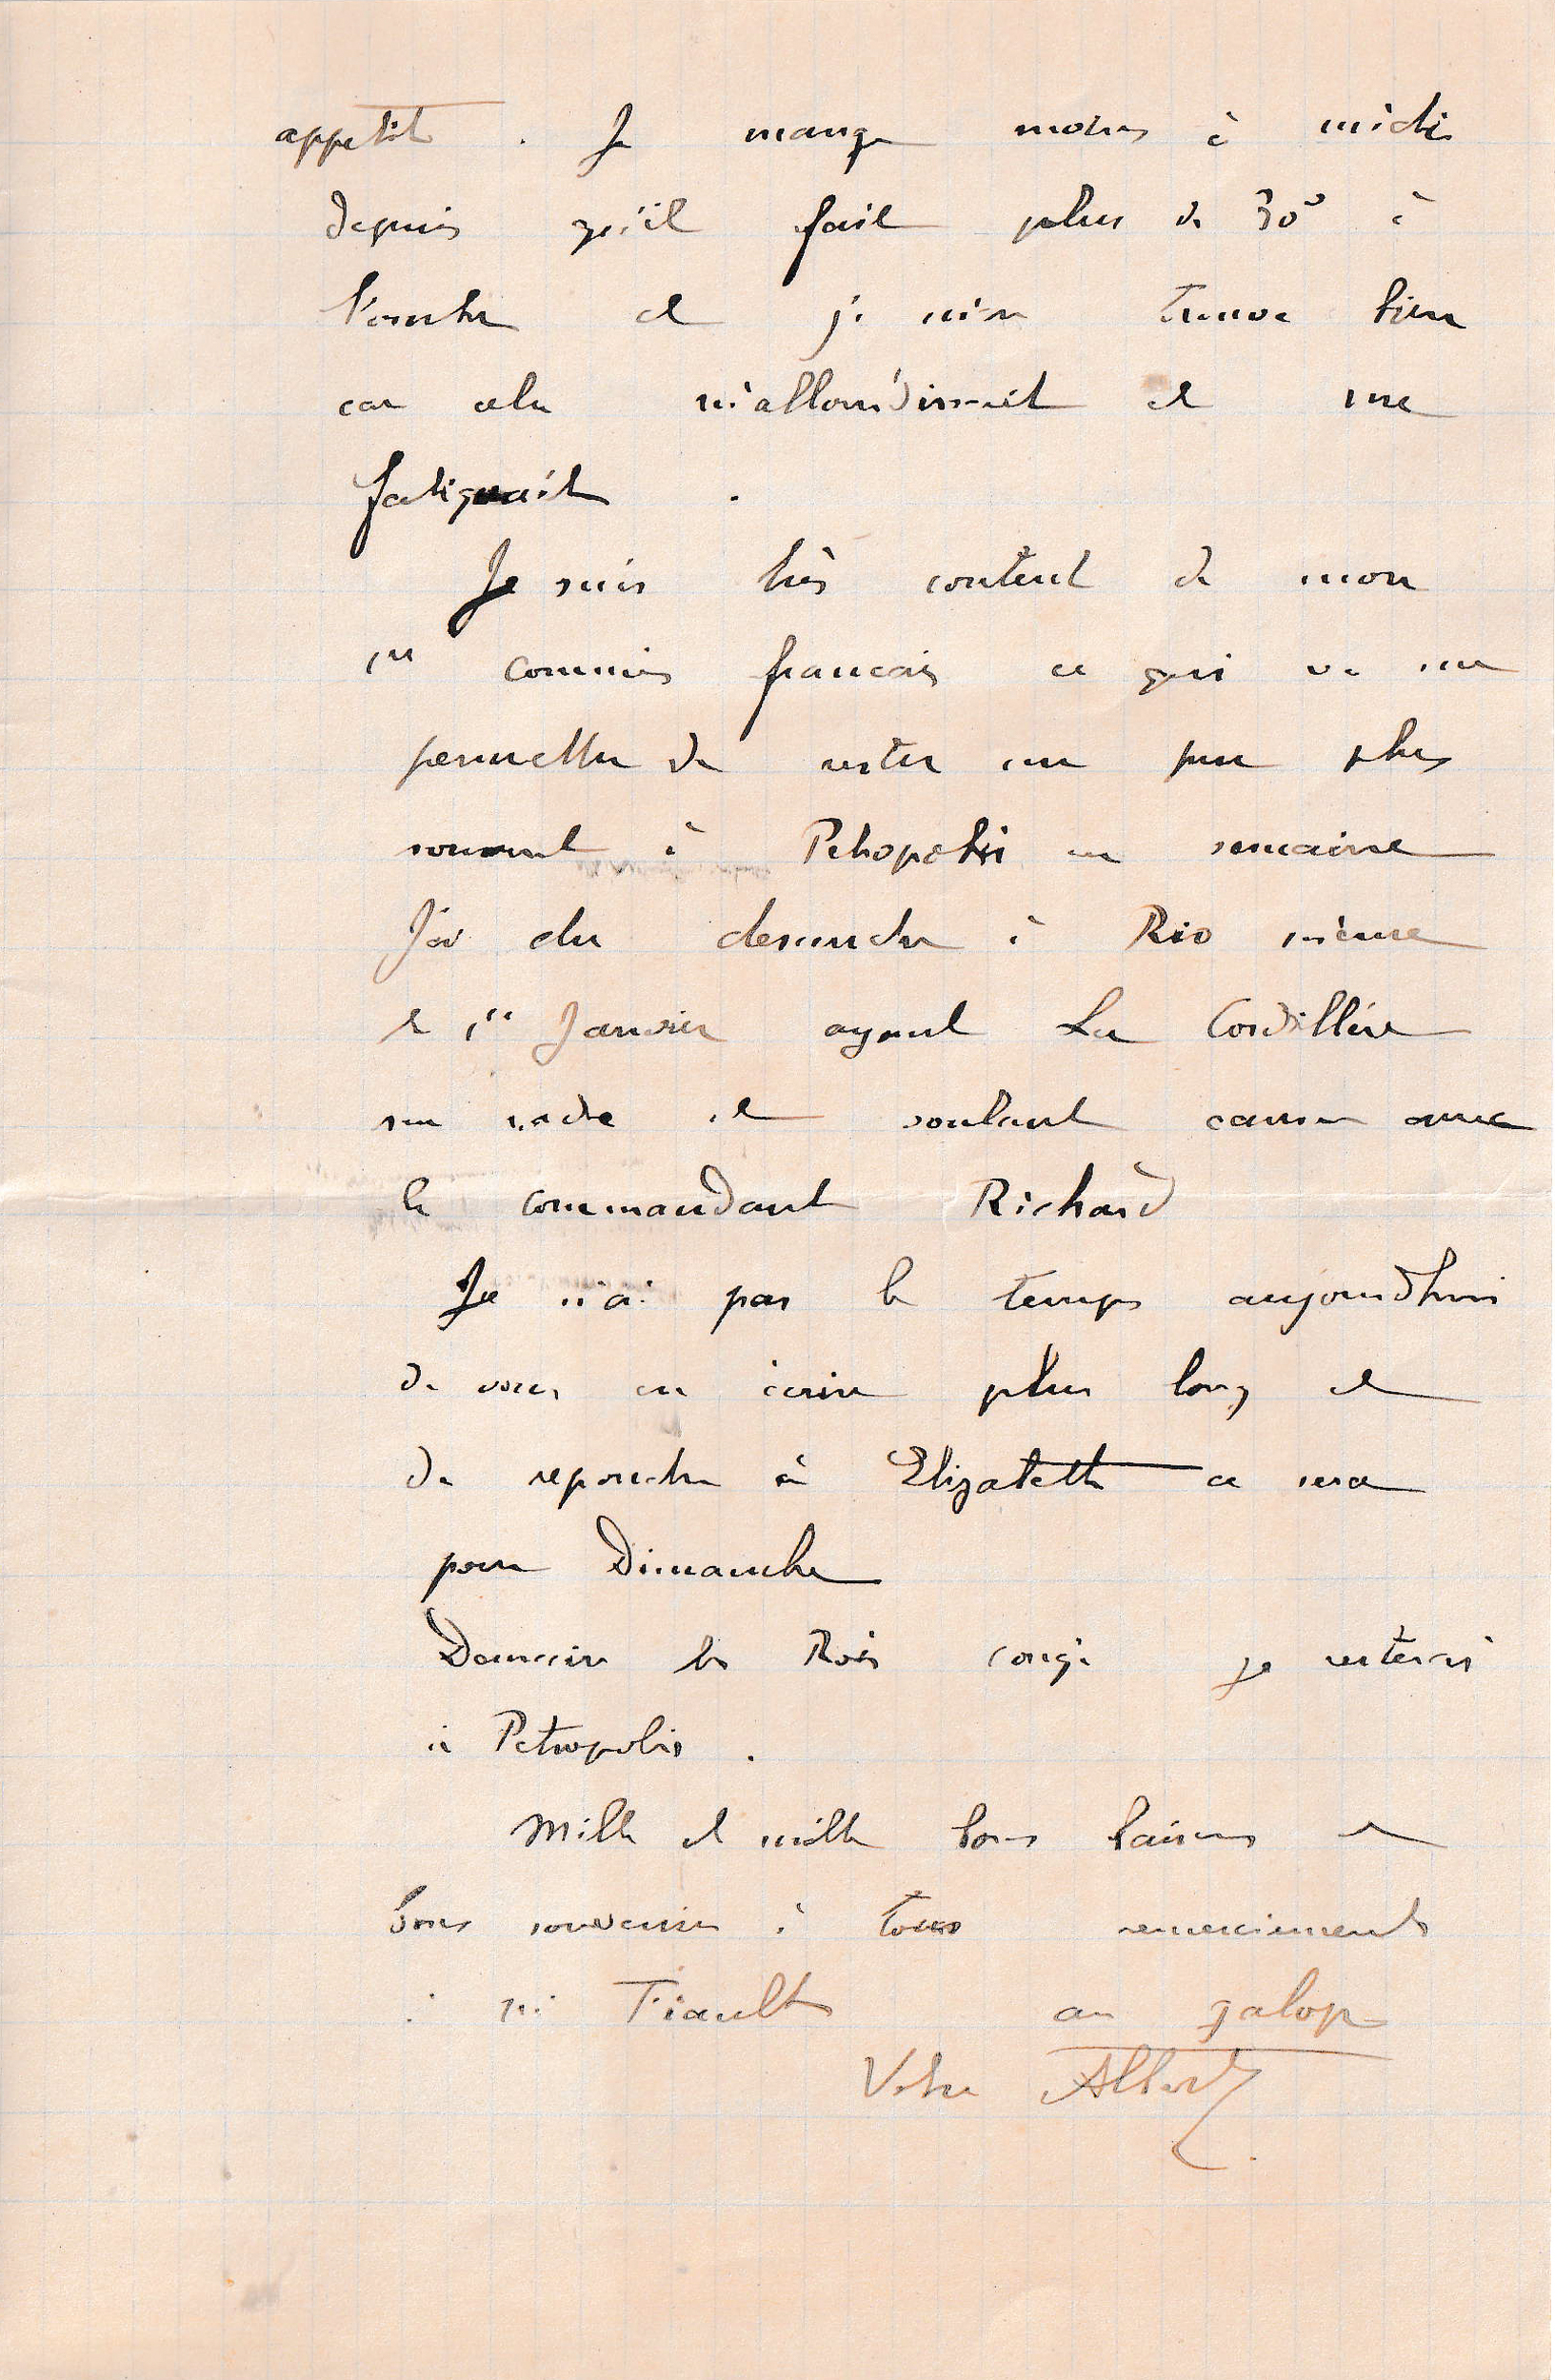 appetit. Je mange moins à midi
depuis qu'il fait plus de 30° à
l'ombre et je m'en trouve bien
car cela m'allourdissait et me
fatiguait.
Je suis très content de mon
1er commis francais ce qui va me
permettre de rester un peu plus
souvent à Petropolis en semaine
J'ai du descendre à Rio même
le 1er Janvier ayant La Cordillère
sur rade et voulant causer avec
le commandant Richard
Je n'ai pas le temps aujourdhui
de vous en écrire plus long et
de repondre à Elizabeth ce sera
pour Dimanche
Demain les Rois congé je resterai
à Petropolis.
Mille et mille bons baisers et
bons souvenirs à tous remerciements
à Tiault au galop
Votre Albert